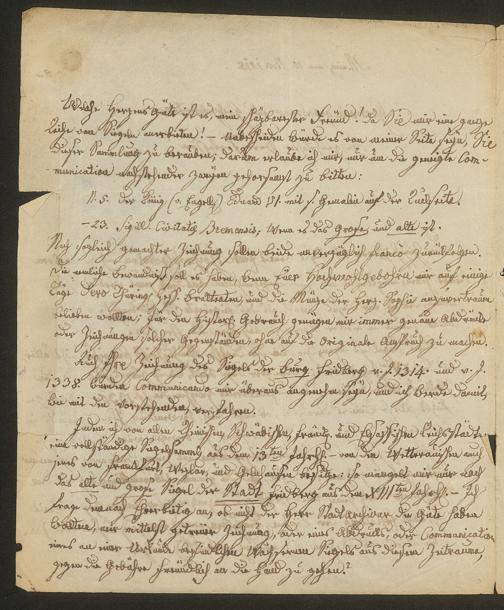 Welche Herzens Güte ist es, mein schäzbarester Freund! da Sie mir eine ganze
Reihe von Siegeln anerbieten! – Unbescheiden würde es von meiner Seite seyn, Sie
dieser Sammlung zu berauben; darum erlaube ich mir, nur um die geneigte Com-
munication nachstehender zweyen gehorsamst zu bitten:
N. 5. der König (v. Engell.) Eduard VI. mit s. Gemalin auf der Rückseite.
– 23. Sigill. Civitatis Bremensis, wenn es das große und alte ist.
Nach sogleich gemachter Zeichnung sollen beide unverzüglich franco zurückfolgen.
Die nemliche Bewandtniß soll es haben, wenn Euer Hochwohlgebohrn mir auf einige
Tage Dero Thüring. Hess. Bracteaten, und die Münze der Herz. Sophia anzuvertrauen
belieben wollten; für den Gebrauch genügen mir immer genaue Abdrücke
oder Zeichnungen solcher Gegenstände, ohne auf die Originale Anspruch zu machen.
Auch Ihre Zeichnung des Siegels der Burg Friedberg v. J. 1314. und v. J.
1338. würden Communicando mir überaus angenehm seyn, und ich werde damit,
wie mit den vorstehenden, verfahren.
Indem ich von allen Rheinischen, Schwäbischen, Fränk. und Elsäßischen Reichsstädten
eine vollständige Siegelsammlg. aus dem 13ten Jahrh. – von den Wetterauischen auch
jenes von Frankfurt, Wezlar, und Gelnhausen besitze: so mangelt mir nur noch
das alte und große Siegel der Stadt Friedberg aus dem XIIIten Jahrh. – Ich
frage demnach an, ob nicht der Herr Stadtarchivar die Güte haben
wollten, mir mittelst getreuer Zeichnung, oder eines Abdrucks, oder Communication
eines an einer Urkunde befindlichen Wächsernen Siegels aus diesem Zeitraume,
gegen die Gebühre freundlich an die Hand zu gehen?